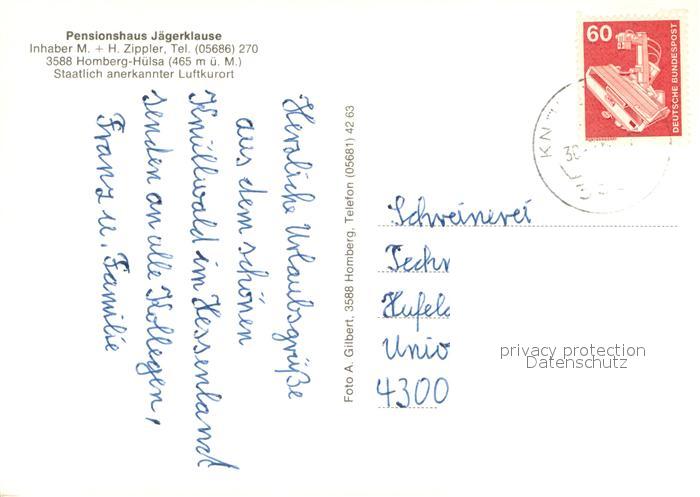 Pensionshaus Jägerklause
Inhaber M. + H. Zippler, Tel. (05686) 270
3588 Homberg-Hülsa (465 m ü. M.)
Staatlich anerkannter Luftkurort
Herzliche Urlaubsgrüße
aus dem schönen
Knüllwald im Hessenland
senden an alle Kollegen,
Franz u. Familie
Foto A. Gilbert, 3588 Homberg, Telefon (05681) 42 63
60
DEUTSCHE BUNDESPOST
KN
Schreinerei
Techn
Hufel
Univ
4300
privacy protection
Datenschutz